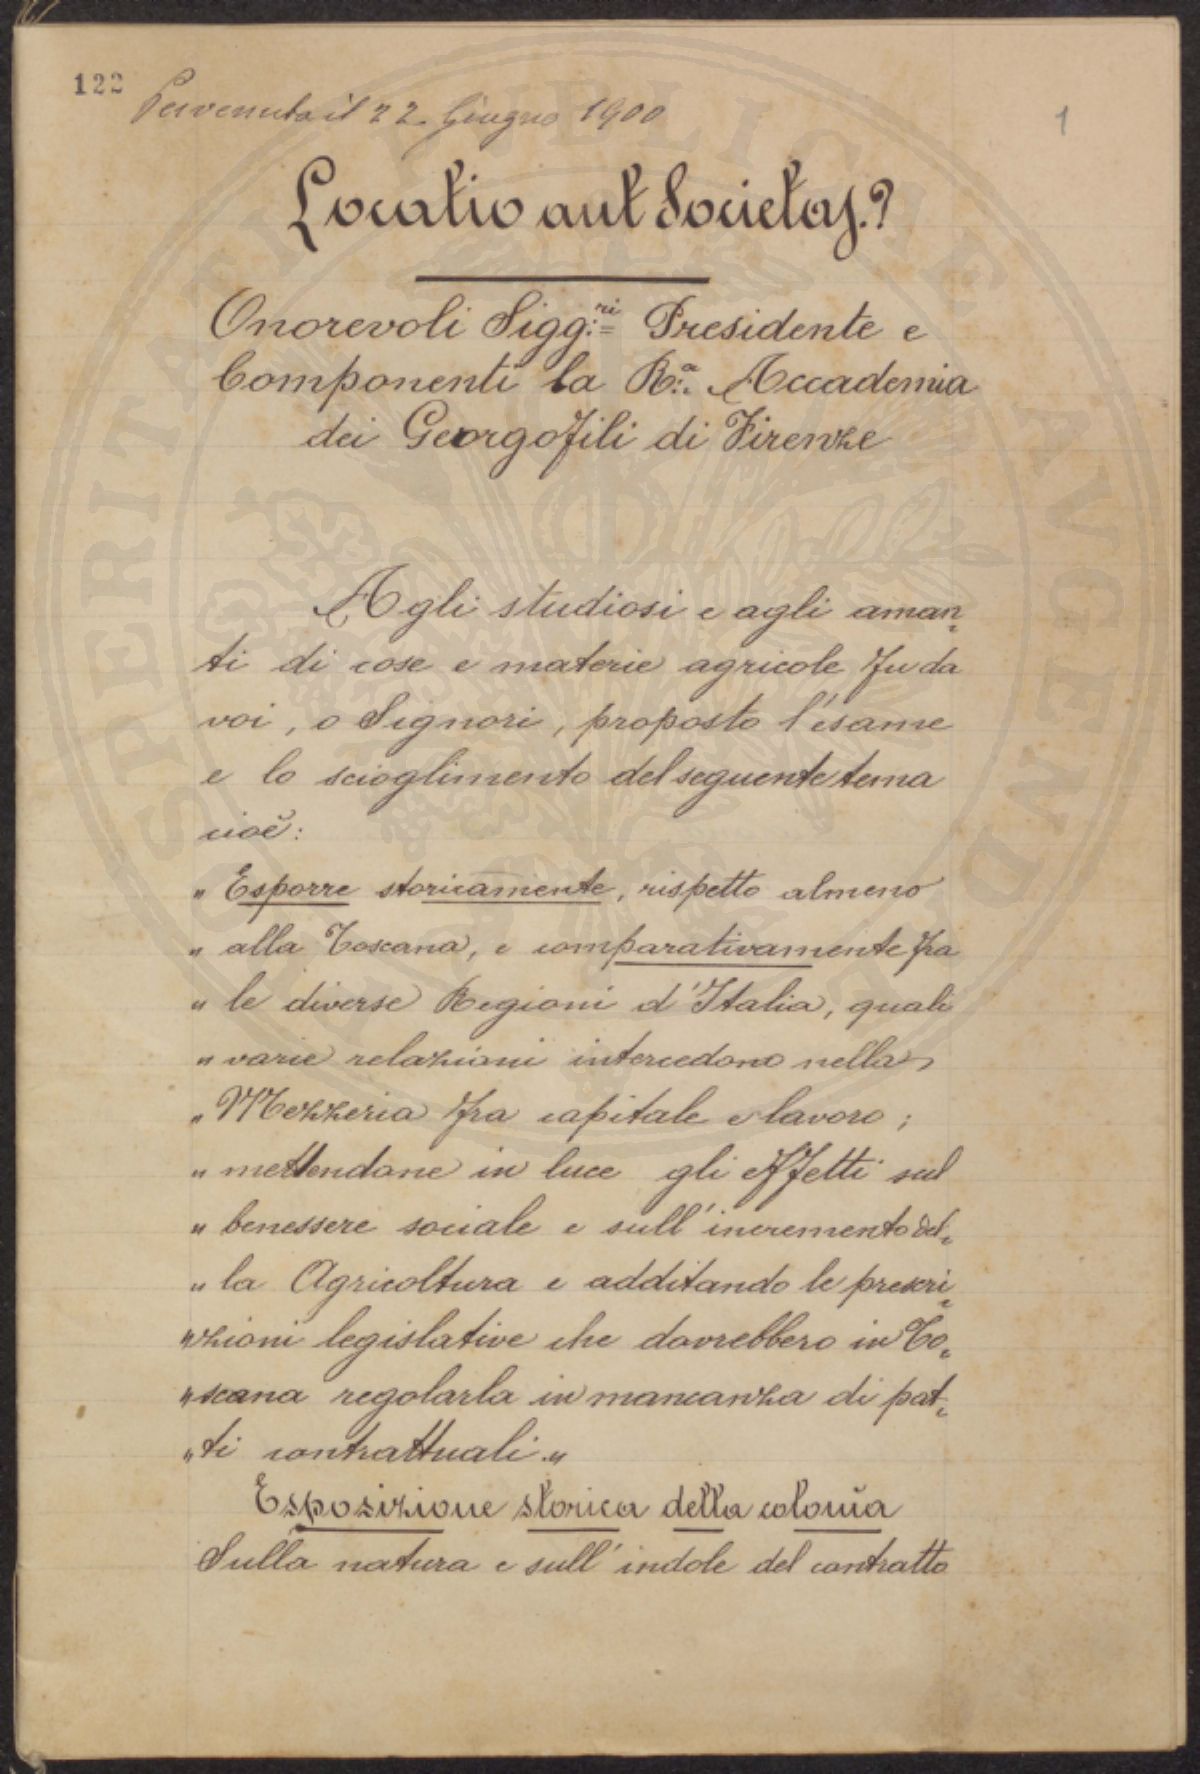 122
Pervenuta il 22 Giugno 1900
1
Locatio aut Societas.?
Onorevoli Sigg:ri Presidente e
Componenti la R:a Accademia
dei Georgofili di Firenze
Agli studiosi e agli aman„
ti di cose e materie agricole fu da
voi, o Signori, proposto l'esame
e lo scioglimento del seguente tema
cioè:
„ Esporre storicamente, rispetto almeno
„ alla Toscana, e comparativamente fra
„ le diverse Regioni d'Italia, quali
„ varie relazioni intercedono nella
„ Mezzeria fra capitale e lavoro;
„ mettendone in luce gli effetti sul
„ benessere sociale e sull'incremento del„
„ la Agricoltura e additando le prescri„
„ zioni legislative che dovrebbero in To„
„ scana regolarla in mancanza di pat„
„ ti contrattuali.„
Esposizione storica della colonìa
Sulla natura e sull'indole del contratto
PROSPERITATI PUBLICAE AVGENDAE